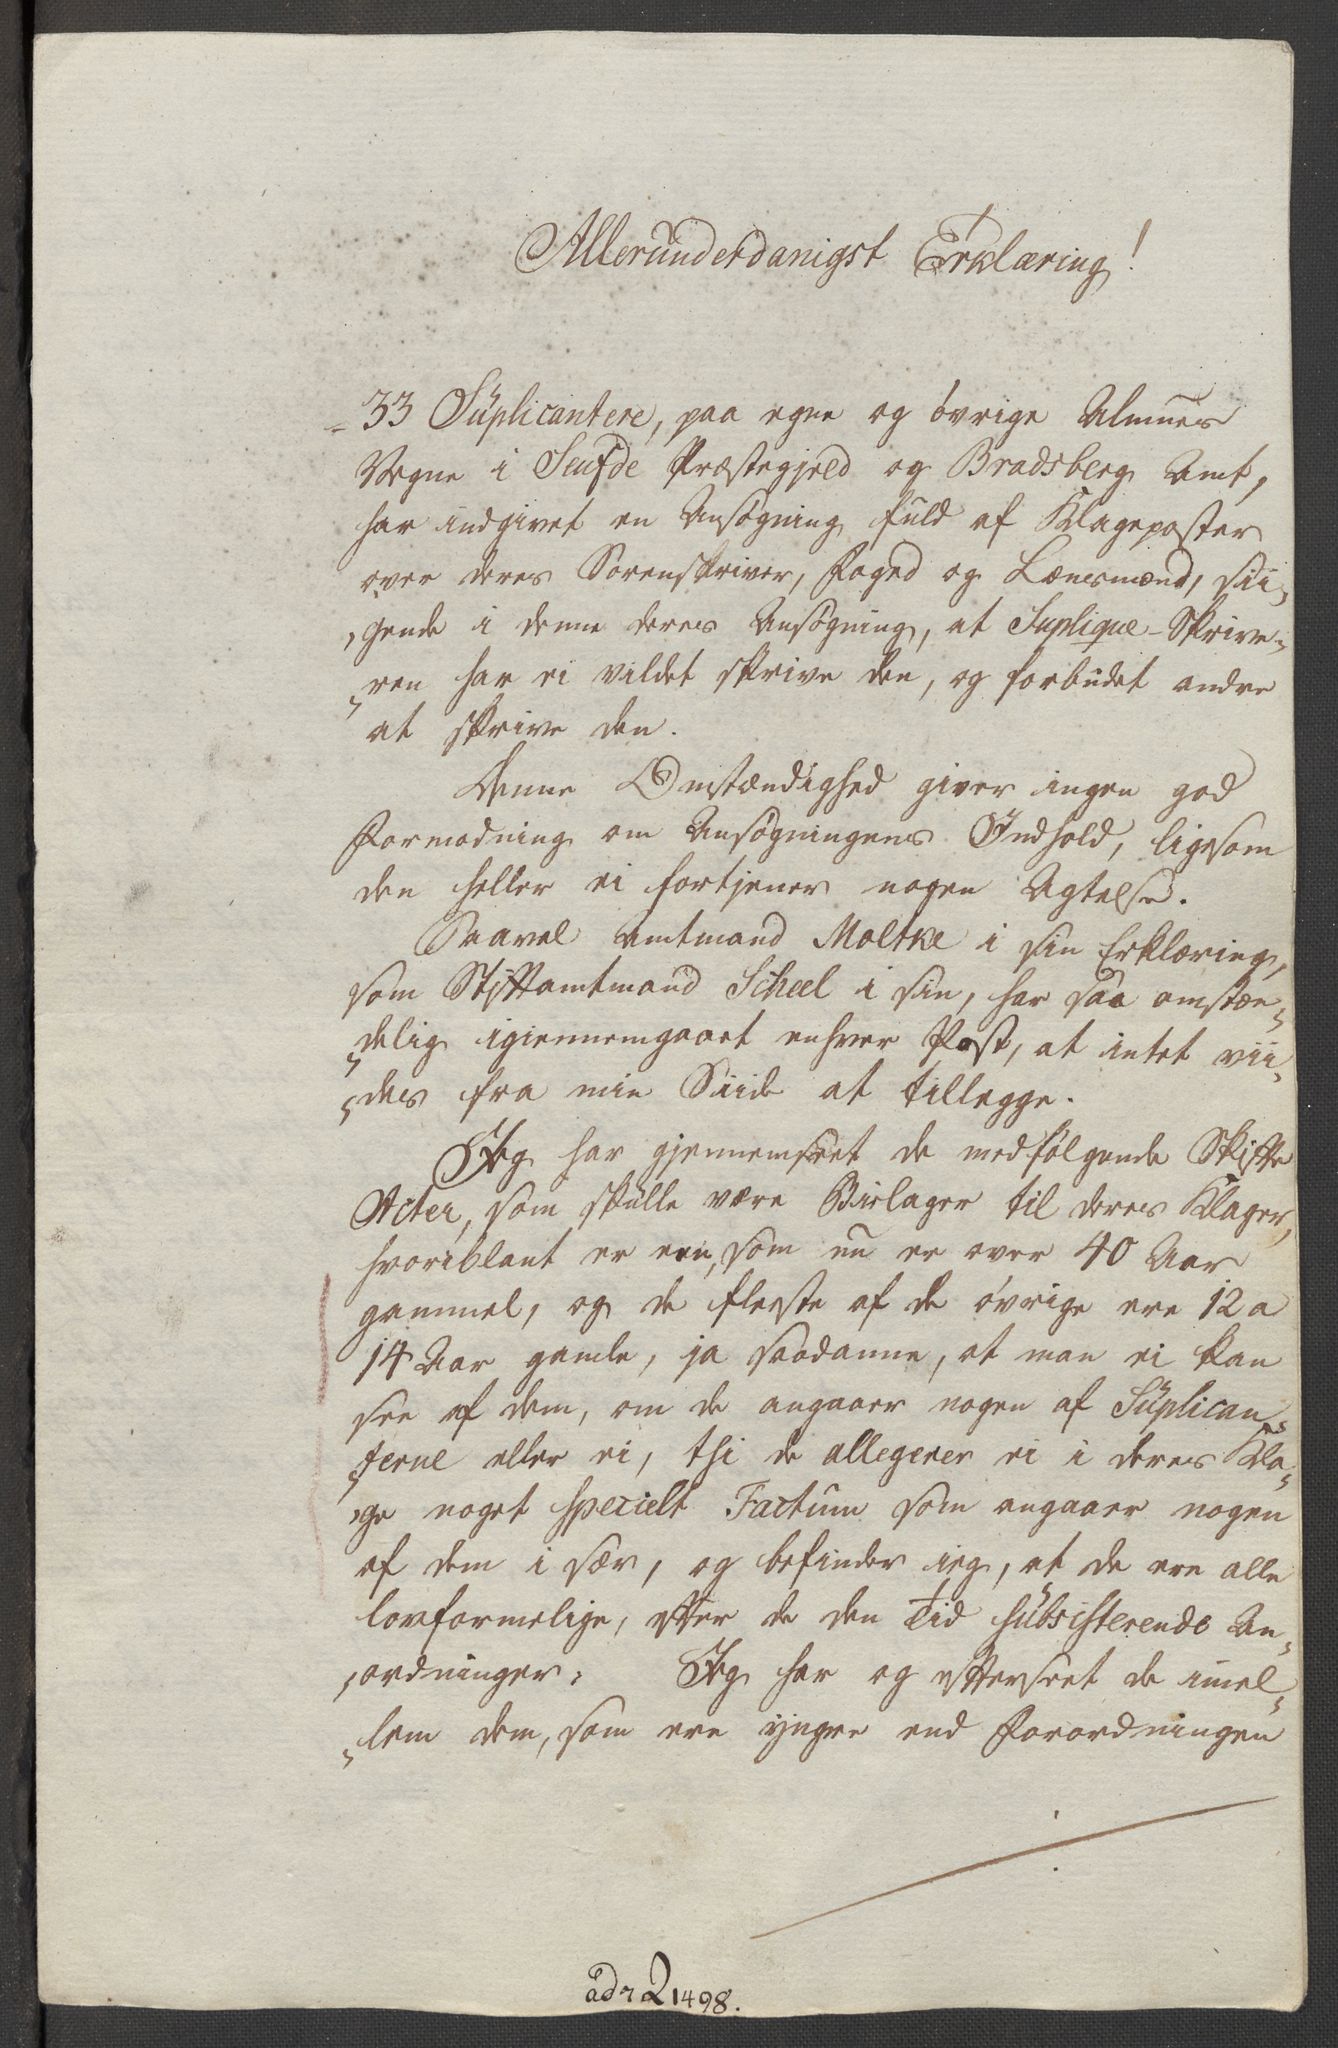 Allerunderdanigst Erklæring!
33 Suplicantere, paa egne og øvrige Almues
Vegne i Seufde Præstegjeld og Bradsberg Amt,
har indgivet en Ansøgning fuld af Klageposter
over deres Sorenskriver, Foged og Lænsmænd, sii-
gende i denne deres Ansøgning, at Suplique-Skrive-
ren har ei vildet skrive den, og forbudet andre
at skrive den.
Denne Omstændighed giver ingen god
Formodning om Ansøgningens Indhold, ligesom
den heller ei fortjener nogen Agtelse.
Saavel Amtmand Moltke i sin Erklæring,
som Stiftamtmand Scheel i sin, har saa omstæn-
delig igiennemgaaet enhver Post, at intet vii-
des fra min Siide at tillegge.
Jeg har gjennemseet de medfølgende Skifte
Acter, som skulle være Bielager til deres Klager,
hvoriblant er een, som nu er over 40 Aar
gammel, og de fleeste af de øvrige ere 12 a
14 Aar gamle, ja saadanne, at man ei kan
see af dem, om de angaaer nogen af Suplican-
terne eller ei, thi de allegerer ei i deres Kla-
ge noget specielt Factum som angaaer nogen
af dem i sær, og befinder ieg, at de ere alle
lovformelige, efter de den Tid subsisterende An-
ordninger. Jeg har og efterseet de imel-
lem dem, som ere yngre end Forordningen
ad 2 1498.